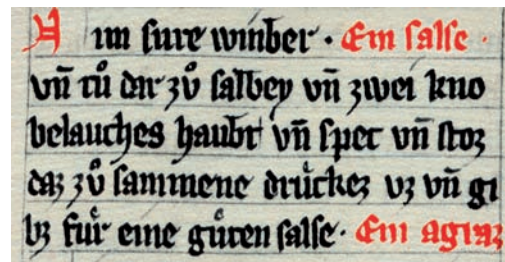 Nim sure winber · Ein salse ·
vn̄ tů dar zů salbey vn̄ zwei kno
belauches haubt vn̄ spec vn̄ stoz
daz zů sammene drückez vz vn̄ gi
bz für eine gůten salse · Ein agraz